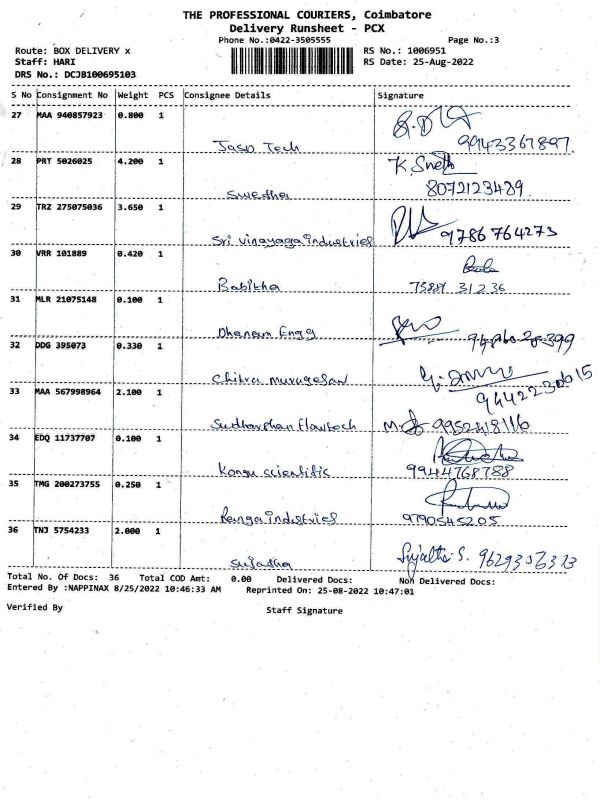 THE PROFESSIONAL COURIERS, Coimbatore
Delivery Runsheet - PCX
Phone No.:0422-3505555
Page No.:3
Route: BOX DELIVERY x
RS No.: 1006951
Staff: HARI
RS Date: 25-Aug-2022
DRS No.: DCJB100695103
S No Consignment No Weight PCS Consignee Details Signature
27 MAA 940857923 0.800 1
Jasp Tech 9943367897
28 PRT 5026025 4.200 1 K. Sneth
Swedha 8072123489
29 TRZ 275075036 3.650 1
Sri vinayaga industries 9786764273
30 VRR 101889 0.420 1
Babitha 75889 31236
31 MLR 21075148 0.100 1
Dhanam Engg
32 DDG 395073 0.330 1
Chitra murugesan
33 MAA 567998964 2.100 1
Sudharshan flowtech 9952418116
34 EDQ 11737707 0.100 1
Kongu scientific 9944768788
35 TMG 200273755 0.250 1
Ranga industries 9790545205
36 TNJ 5754233 2.000 1
Sujatha Sujatha S. 9629356313
Total No. Of Docs: 36 Total COD Amt: 0.00 Delivered Docs: Non Delivered Docs:
Entered By :NAPPINAX 8/25/2022 10:46:33 AM Reprinted On: 25-08-2022 10:47:01
Verified By
Staff Signature